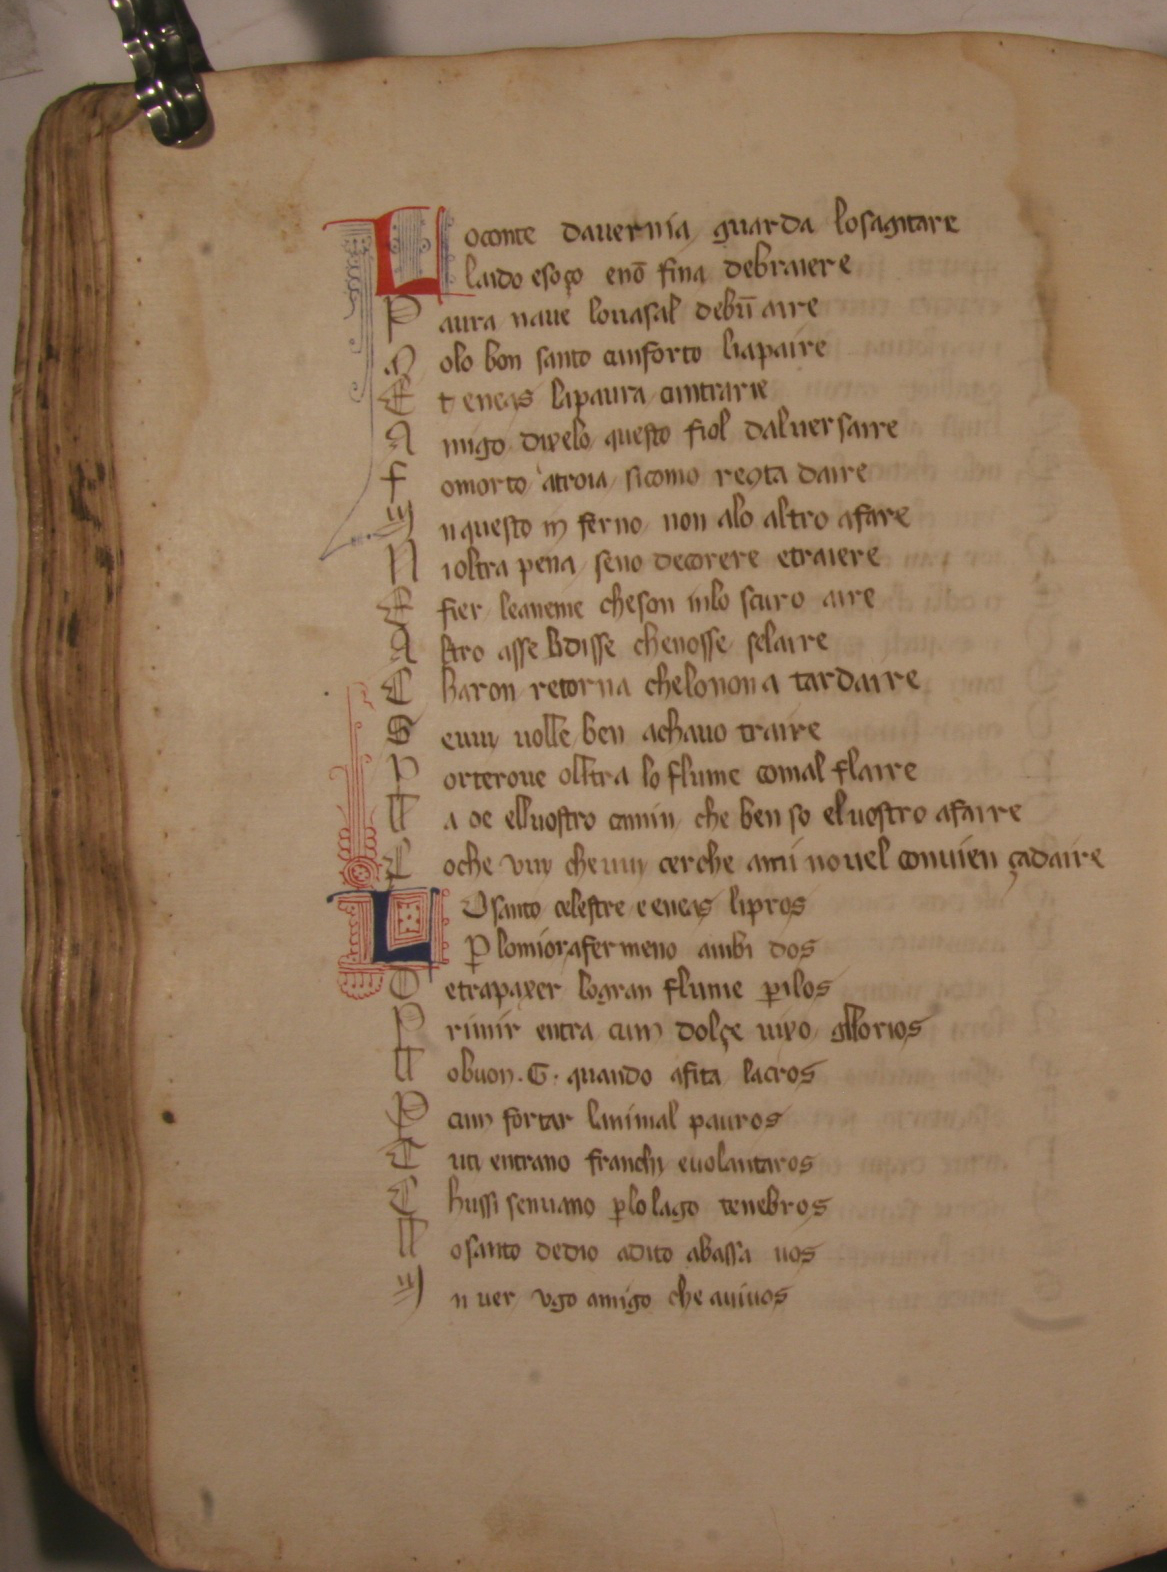 Loconte dauernia guarda losagitare
laido esoço enō fina debraiere
Paura naue louasal debū aire
Molo bon santo cunforto liapaire
Et eneas lipaura cuntrarie
Amigo dixelo questo fiol daluersaire
Fomorto atroia sicomo reqta daire
In questo in ferno non alo altro afare
Nioltra pena seno decorere etraiere
Efier leaneme cheson inlo scuro aire
Astro asse lidisse chenosse selaire
Charon retorna chelonon a tardaire
Seuui uolle ben achauo traire
Porteroue olltra lo flume comal flaire
Lla oe elluostro camin che ben so eluostro afaire
Loche vuy che uuy cerche anti nouel conuien çadaire
LO santo celestre e eneas lipros
Plomiorafermeno ambi dos
Oetrapaxer logran flume pilos
Primir entra cun dolçe uixo gllorios
Llobuon .G. quando afita lacros
Pcun fortar lanimal pauros
Tuti entrano franchi euolantaros
Chussi senuano plo lago tenebros
Llosanto dedio adito abassa uos
In uer vgo amigo che auiuos